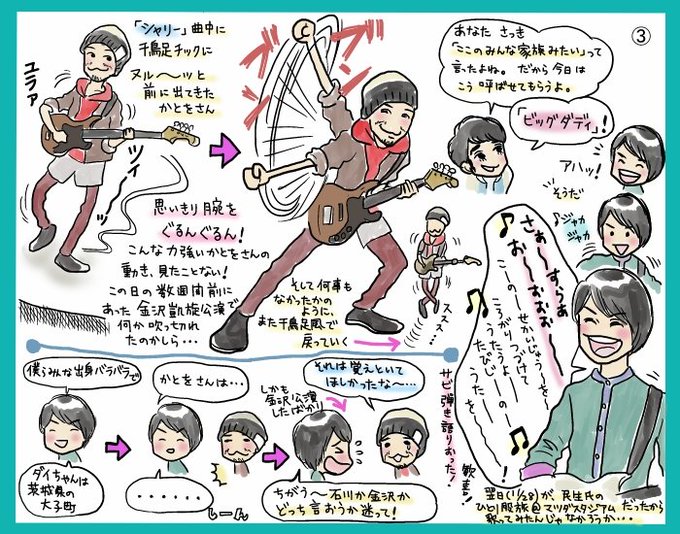 ③
「シャリー」曲中に
千鳥足チックに
ヌル〜〜ッと
前に出てきた
かとをさん
ユラァ
ツィーッ
思いきり腕を
ぐるんぐるん！
こんな力強いかとをさんの
動き、見たことない！
この日の数週間前に
あった金沢凱旋公演で
何か吹っきれ
たのかしら…
そして何事も
なかったかの
ように、
また千鳥足風で
戻っていく
ススス…
あなた さっき
「ここのみんな家族みたい」って
言ったよね。だから今日は
こう呼ばせてもらうよ。
「ビッグダディ」！
アハッ！
そうだ
ジャカ
ジャカ
さぁーすらぁ
おーおぉおぉー
こーのーせかいじゅーうを
ころがりつづけて
うたうよー
たびじーーの
うたを
！
サビ弾き語りおった！
歓喜！
翌日(1/28)が、民生氏の
ひとり股旅@マツダスタジアムだったから
歌ってみたんじゃなかろうか…
僕らみんな出身バラバラで
ダイちゃんは
茨城県の
大子町
かとをさんは…
・・・・・・
しーん
しかも
金沢公演
したばかり
それは覚えといて
ほしかったな〜…
ちがう〜石川か金沢か
どっち言おうか迷って！